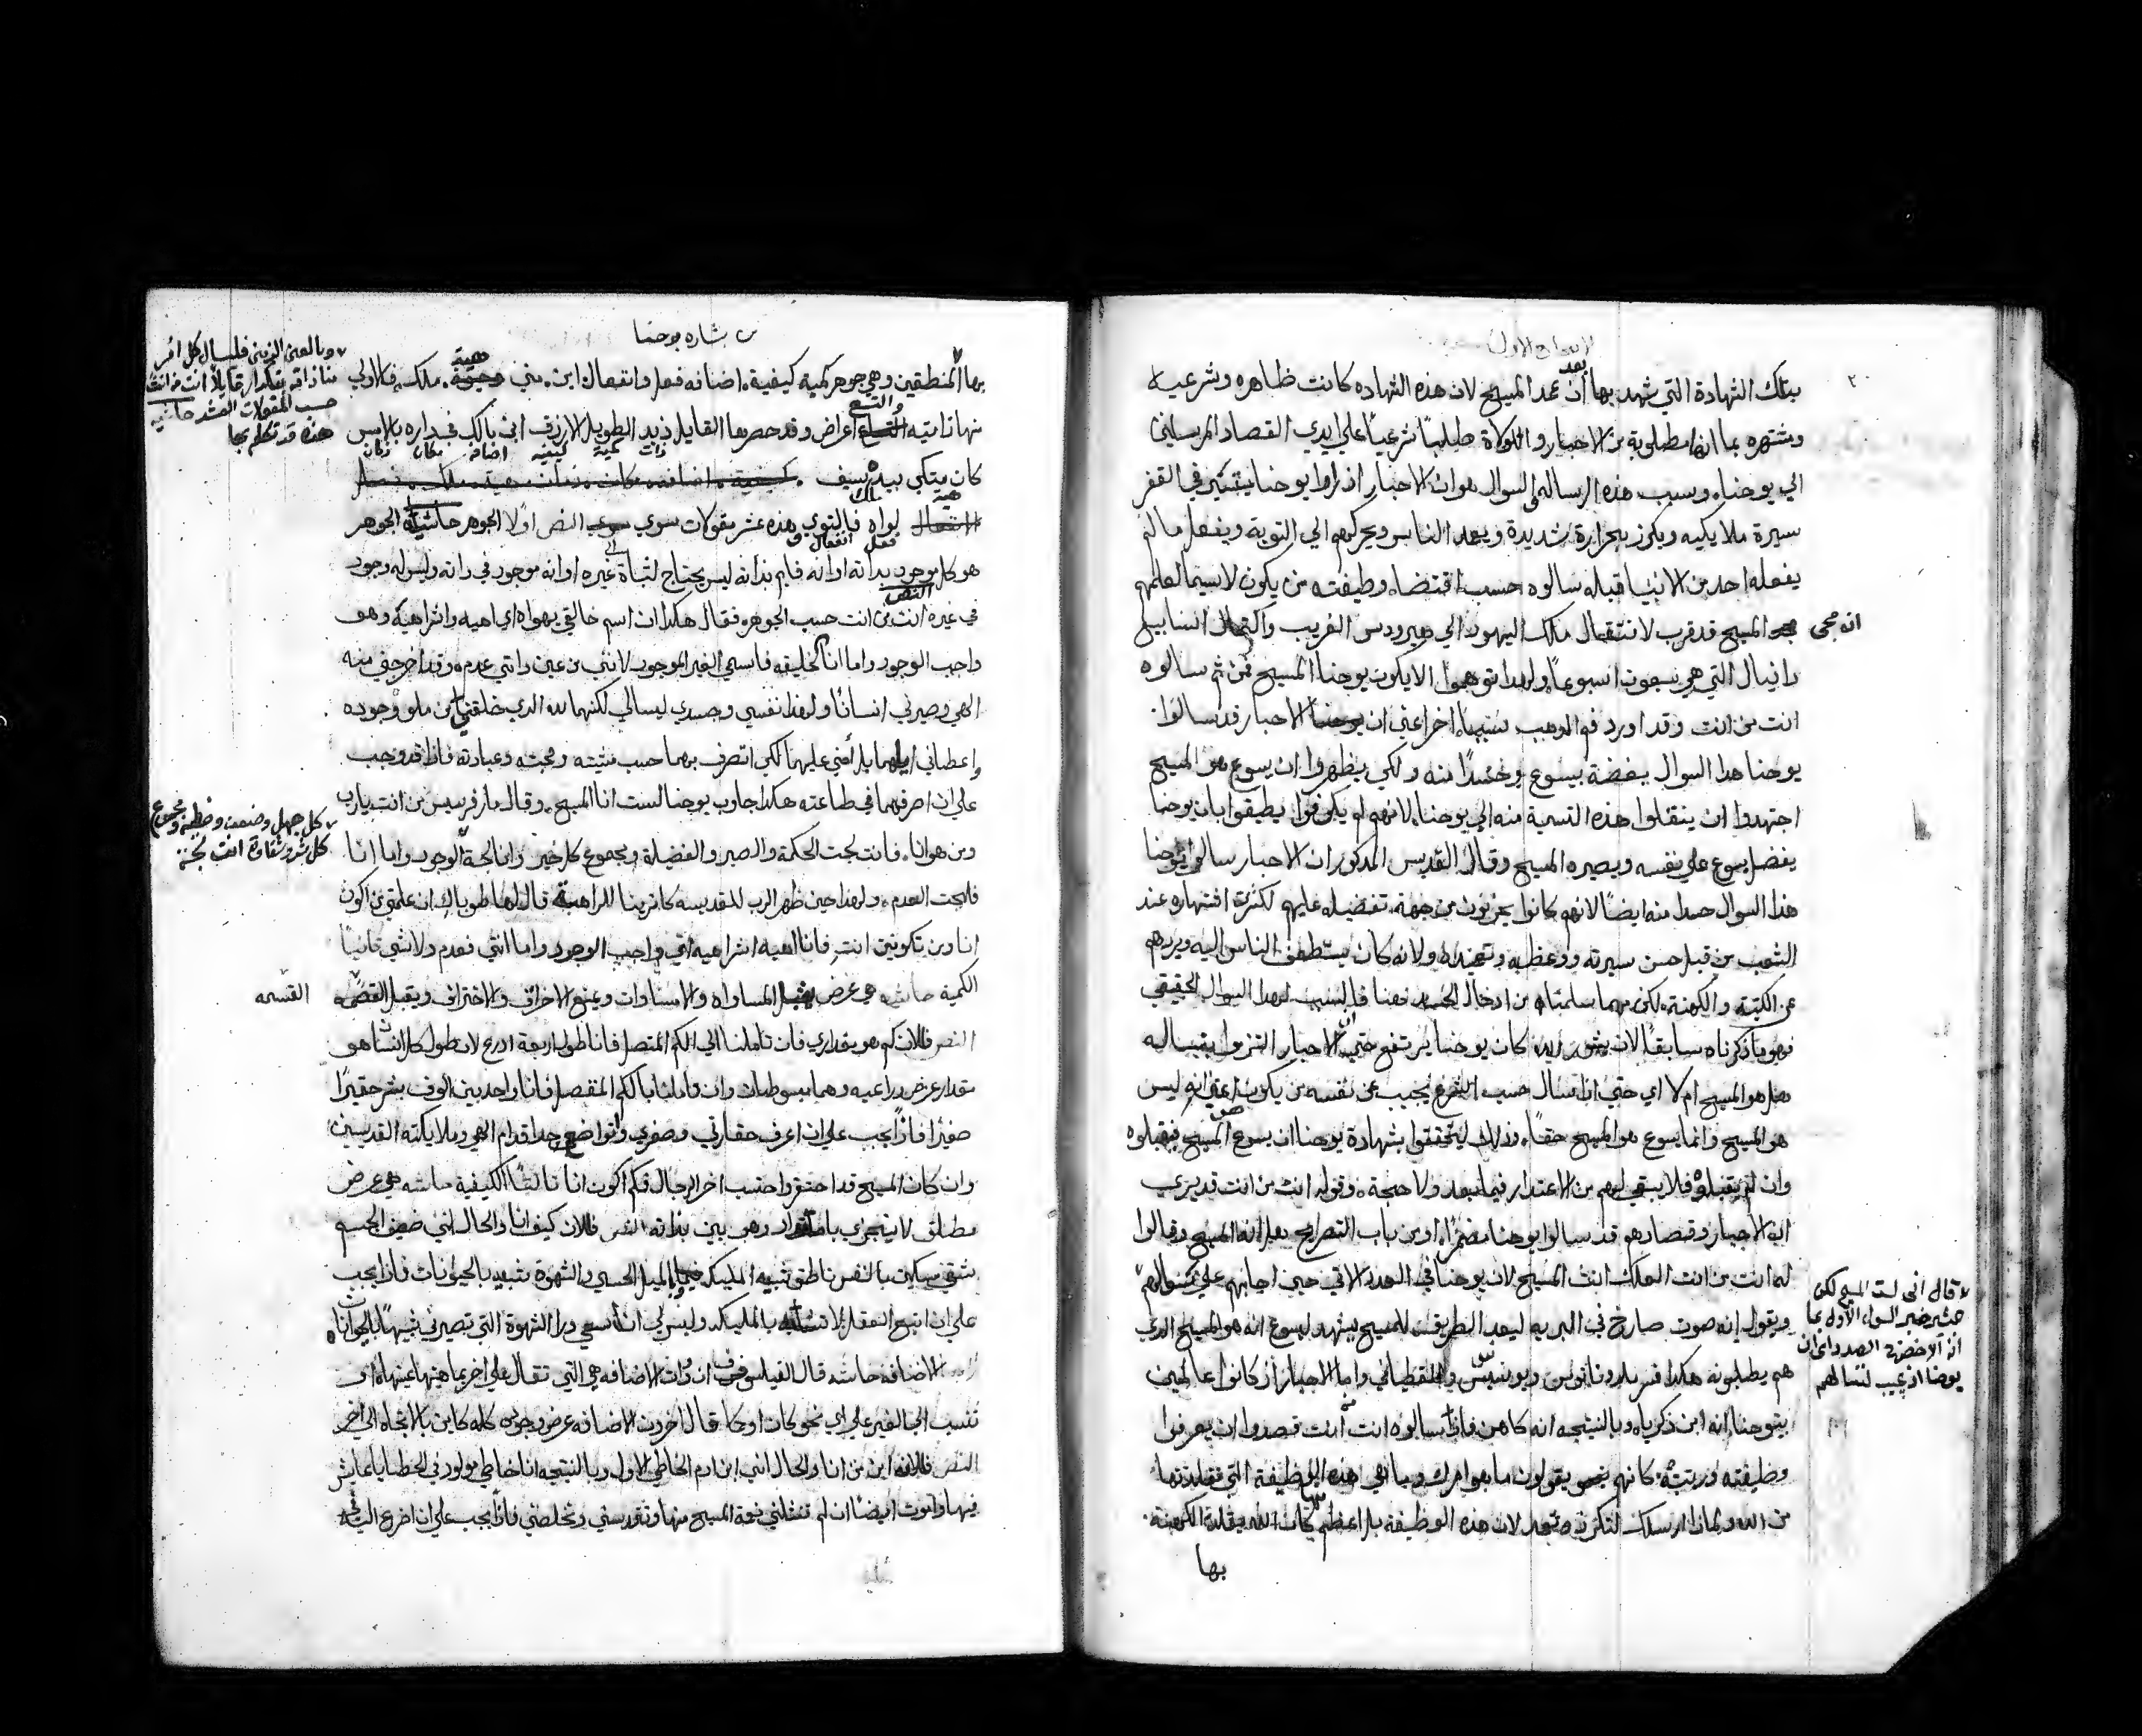 الاصحاح الاول
٢٠
بتلك الشهادة التي شهد بها بعد ان عمد المسيح لان هذه الشهاده كانت ظاهره وشرعيه
ومشتهره بما انها مطلوبة من الاحبار واللاوية طلبًا شرعيًا علي ايدي القصاد المرسلين
الي يوحنا. وسبب هذه الرساله والسوال هو ان الاحبار اذ راوا يوحنا يتنكير في القفر
سيرة ملايكيه ويكرز بحرارة شديدة ويعمد الناس ويحركهم الي التوبة ويفعل ما لم
يفعله احد من الانبيا قبله سالوه حسب اقتضا وظيفته من يكون لاسيما لعلمهم
انه مجى
المسيح قد قرب لانتقال ملك اليهود الي هيرودس الغريب واكتمال اسابيع
دانيال التي هي سبعون اسبوعًا ولهذا توهموا الا يكون يوحنا المسيح فمن ثم سالوه
انت من انت وقد اورد فم الذهب سببًا اخر اعني ان الاحبار قد سالوا
يوحنا هذا السوال بغضة بيسوع وحسدًا منه ولكي يظهروا ان يسوع هو المسيح
اجتهدوا ان ينقلوا هذه التسمية منه الي يوحنا. لانهم لم يكونوا يطيقوا بان يوحنا
يفضل يسوع علي نفسه ويصيره المسيح وقال القديس المذكور ان الاحبار سالوا يوحنا
هذا السوال حسدا منه ايضًا لانهم كانوا يحزنون من جهة تفضيله عليهم لكثرة اشتهاره عند
الشعب من قبل حسن سيرته ووعظه وتعميده ولانه كان يستطف الناس اليه ويردهم
عن الكتبة والكهنة. لكن مهما سلمناه من ادخال الحسد هنا فالسبب لهذا السوال الحقيقي
فهو ما ذكرناه سابقًا لان كان يوحنا يرتفع حتي ان الاحبار التزموا بقبساليه
هل هو المسيح ام لا اي حتي اذا سال حسب الشرع يجيب عن نفسه من يكون اعني انه ليس
هو المسيح وانما يسوع هو المسيح حقًا. وذلك ليتحققوا بشهادة يوحنا ان يسوع المسيح فيقبلوه
وان لم يقبلوه فلا يبقي لهم من الاعتدار فيما بعد ولا حجة. وقوله انت من انت قد يري
ان الاحبار وقصادهم قد سالوا يوحنا مضمرًا. او من باب التصريح هل انه المسيح وقالوا
له انت من انت العلك انت المسيح لان يوحنا في العدد الاتي حين اجابهم علي سوالهم
ويقول انه صوت صارخ في البريه ليعد الطريق للمسيح ليشهد ليسوع انه هو المسيح الذي
هم يطلبونه هكذا فسر ملدوناتوس وواما الاحبار اذ كانوا عالمين
بيوحنا انه ابن زكريا. وبالنتيجه انه كاهن فاذا سالوه انت من انت قصدوا ان يعرفوا
وظيفته ورتبته. كانهم يقولون ما هو امرك وما هي هذه الوظيفة التي تقلدتها
من الله ولماذا ارسلك لتكرز وتعمد لان هذه الوظيفة بل اعظم كان الله يقلد الكهنة.
بها
قال انى لست المسيح لكن
حيث ضمير السوال الاول بما
انه
يوحنا اذ يجيب لسالهم
بشاره يوحنا
بها المنطقين وهي جوهر كمية كيفية. اضافه فعل وانفعال اين. متي هية. ملك. فالاولي
منها ذاتيه والتسع اعراض وقد حصرها القايل زيد الطويل الازرق ابن مالك في داره بالامس
ذات كمية كيفيه اضافه مكان زمان
كان متكي بيده سيف
هية ملك
لواه فالتوي وهذه عشر مقولات سوي النص اولا الجوهر حاشية الجوهر
فعل انفعال
هو كل موجود بداته او انه قايم بذاته ليس يحتاج لثباة الى غيره او انه موجود في داته وليس له وجود
في غيره النص انت من انت حسب الجوهر فقال هكذا ان اسم خالقي يهواه اي اهيه واشراهيه وهو
واجب الوجود واما انا الخليقه فاسمي الغير الموجود لانني من عين داتي عدم. وقد اخرجني منه
الهي وصيرني انسانًا ولهذا نفسي وجسدي ليسا لي لكنهما لله الذي خلقني من ملو وجوده
واعطاني اياهما بل امني عليهما لكي اتصرف بهما حسب مشيته ومحبته وعبادته فاذا قد وجب
علي ان اصرفهما في طاعته هكذا جاوب يوحنا لست انا المسيح. وقال مار فرنسيس من انت يارب
ومن هو انا. فانت لجت الحكمة والصبر والفضيلة ومجموع كل خير وانا لجة الوجود واما انا
فلجت العدم. ولهذا حين ظهر الرب للقديسه كاترينا الراهبة قال لها طوباك ان علمتي من اكون
انا ومن تكونين انتِ. فانا اهيه اشراهيه اي واجب الوجود واما انتي فعدم ولاشي ثانيًا
الكمية حاشيه هي عرض يقبل المساواه والامساوات ويمنع الاحراق والاختراق ويقبل القسمه
القسمه
النص فالان كم هو مقداري فان تاملنا الي الكم المتصل فانا طول اربعة ادرع لان طول كل انسان هو
مقدار عرض دراعيه وهما مبسوطان وان تاملنا بالكم المنفصل فانا واحد بين الوف بشر حقيرًا
صغيرًا فاذًا يجب علي ان اعرف حقارتي وصغري واتواضع جدا قدام الهي وملايكته القديسين
وان كان المسيح قد احتقر واحتسب اخر الرجال فكم اكون انا ثالثًا الكيفية حاشيه هي عرض
مطلق لا يتجزي وهو بين بذاته النص فالان كيف انا والحال انني ضعيف الجسم
شقي سكين بالنفس ناطق شبيه المليكه واما بالميل الحسي والشهوة شبيه بالحيوانات فاذا يجب
علي ان اتبع العقل لاتشبه بالمليكه وليس لي ان اسعي ورا الشهوة التي تصيرني شبيهًا بالحيوانات.
رابعا الاضافه حاشيه قال الفيلسوف ان ذوات الاضافه هي التي تقال علي اخر بماهيتها عينها
تنسب الي الغير علي اي نحو كان او كما قال اخرون الاضافه عرض وجوده كله كاين بالاتجاه الي اخر
النص فالان ابن من انا والحال انني ابن ادم الخاطي الاول وبالنتيجه انا خاطي مولود في الخطايا عايش
فيها واموت ايضًا ان لم تنشلني نعمة المسيح منها وتقدسني وتخلصني فاذًا يجب علي ان اضرع اليه
وبالمعنى الديني فليسال كل امر
منا ذاته بمقدار قايلًا انت من انت
حسب المقولات العشر حاشيه
هذه قد تكلم بها
كل جهل وضعف وخطية ومجموع
كل شر وشقاوة انت لجة